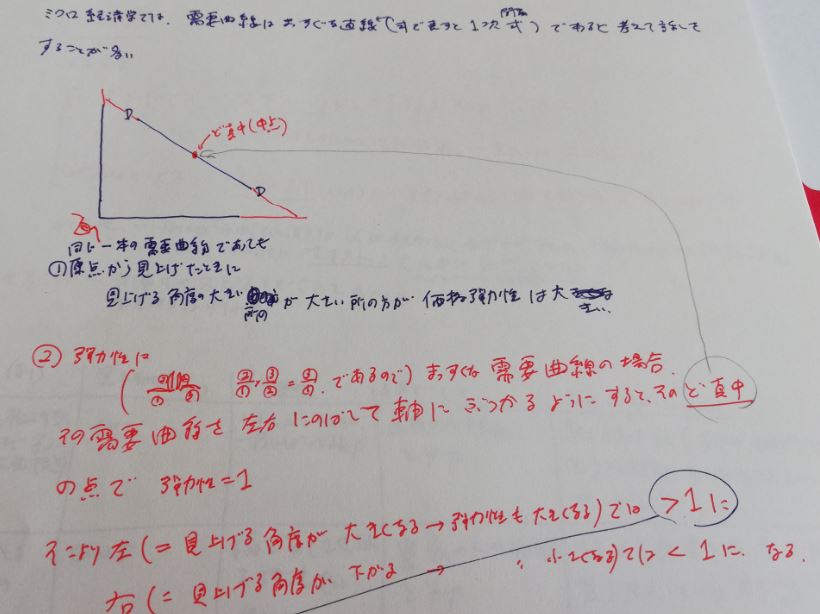 ミクロ経済学では、需要曲線はまっすぐな直線(式で表すと1次関数式)であると考えて話しを
することが多い
D
ど真中(中点)
D
同じ一本の需要曲線であっても
①原点から見上げたときに
見上げる角度の大きい所の が大きい所の方が 価格弾力性は大 きい.
② 弾力性は
( であるので) まっすぐな 需要曲線の場合.
その需要曲線を左右にのばして軸にぶつかるようにすると、そのど真中
の点で 弾力性=1
そこより左(=見上げる角度が大きくなる→弾力性も大きくなる)では >1に
右(=見上げる角度が下がる → 〃 小さくなる)では <1に なる.